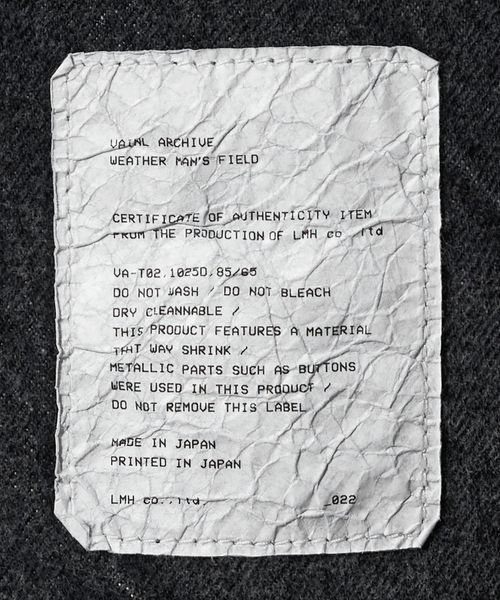 VAINL ARCHIVE
WEATHER MAN'S FIELD
CERTIFICATE OF AUTHENTICITY ITEM
FROM THE PRODUCTION OF LMH co., ltd
VA-T02,1025D,85/65
DO NOT WASH / DO NOT BLEACH
DRY CLEANNABLE /
THIS PRODUCT FEATURES A MATERIAL
THT WAY SHRINK /
METALLIC PARTS SUCH AS BUTTONS
WERE USED IN THIS PRODUCT /
DO NOT REMOVE THIS LABEL
MADE IN JAPAN
PRINTED IN JAPAN
LMH co.,ltd, _022